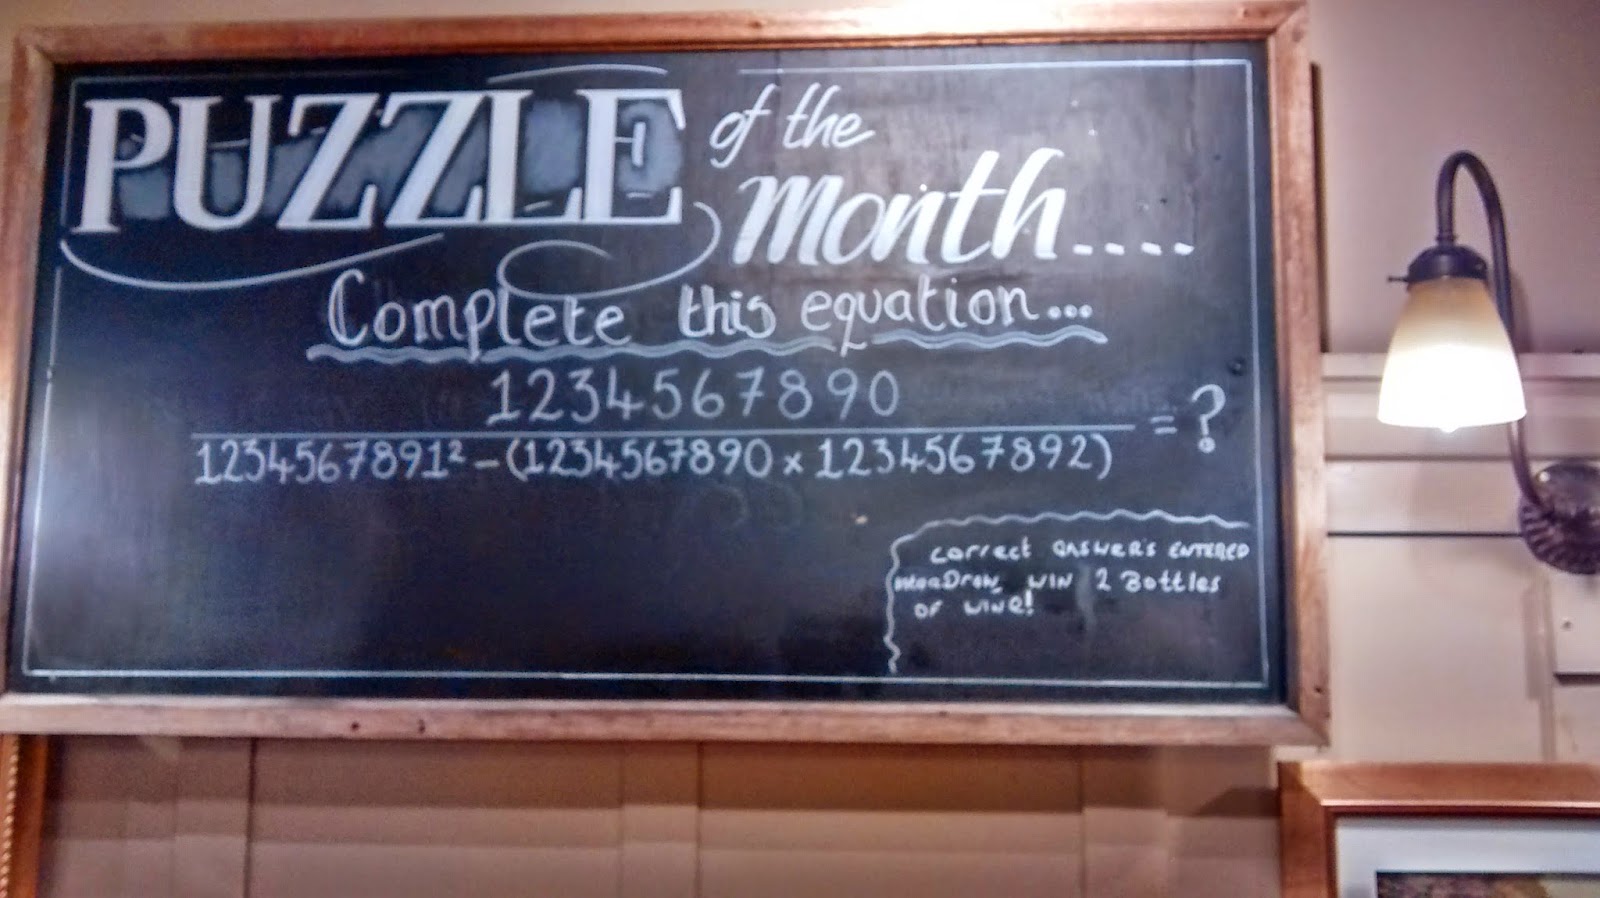 PUZZLE of the
Month....
Complete this equation...
1234567890
1234567891² - (1234567890 x 1234567892) = ?
correct answer's ENTERED
Draw, WIN 2 Bottles
OF WINE!